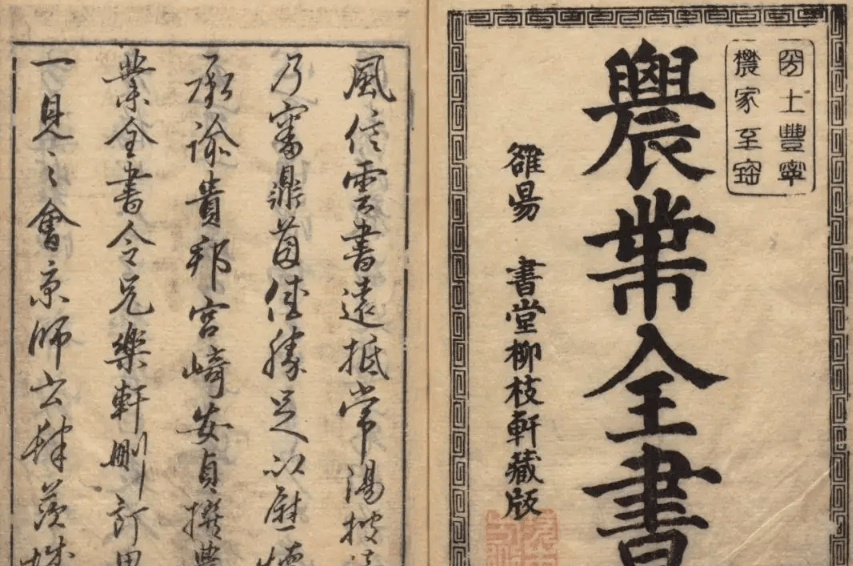 農業全書
農家至寳
雒昜　書堂柳枝軒藏版
風信雲書遠抵常陽披
乃審鼎茵佳勝足以慰
承諭貴邦宮崎安貞撰農
業全書令兄樂軒刪訂
一見之會京師書肆茨城